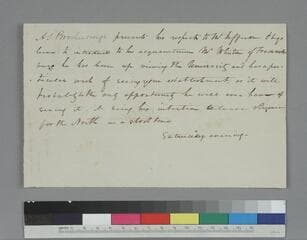 A. S. Brockenbrough presents his respects to Mr Jefferson & begs
leave to introduce to his acquaintance Mr Wheten of
he has been up viewing the University and has a par-
ticular wish of seeing your establishment as it will
probably be the only opportunity he will ever have of
seeing it, it being his intention to leave Virginia
for the North in a short time
Saturday evening.